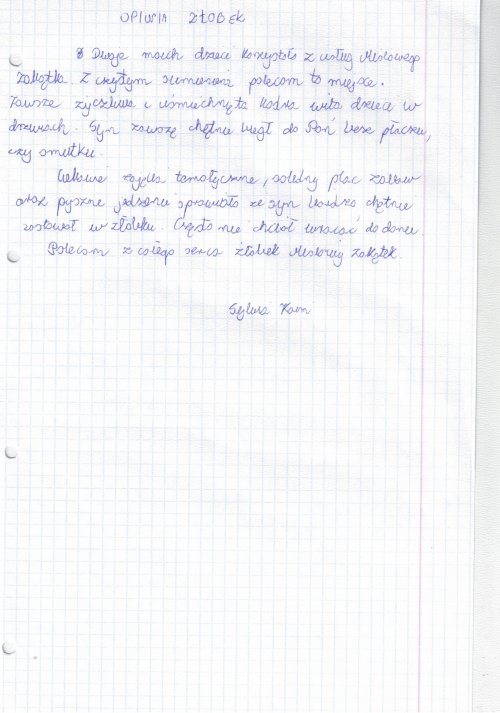 OPINIA ŻŁOBEK
Dwoje moich dzieci korzystało z usług Misiowego
Zakątka. Z czystym sumieniem polecam to miejsce.
Zawsze życzliwa i uśmiechnięta kadra wita dzieci w
drzwiach. Syn zawsze chętnie biegł do Pań bez płaczu,
czy smutku.
Ciekawe zajęcia tematyczne, solidny plac zabaw
oraz pyszne jedzenie sprawiało że syn bardzo chętnie
zostawał w żłobku. Często nie chciał wracać do domu.
Polecam z całego serca żłobek Misiowy Zakątek.
Sylwia